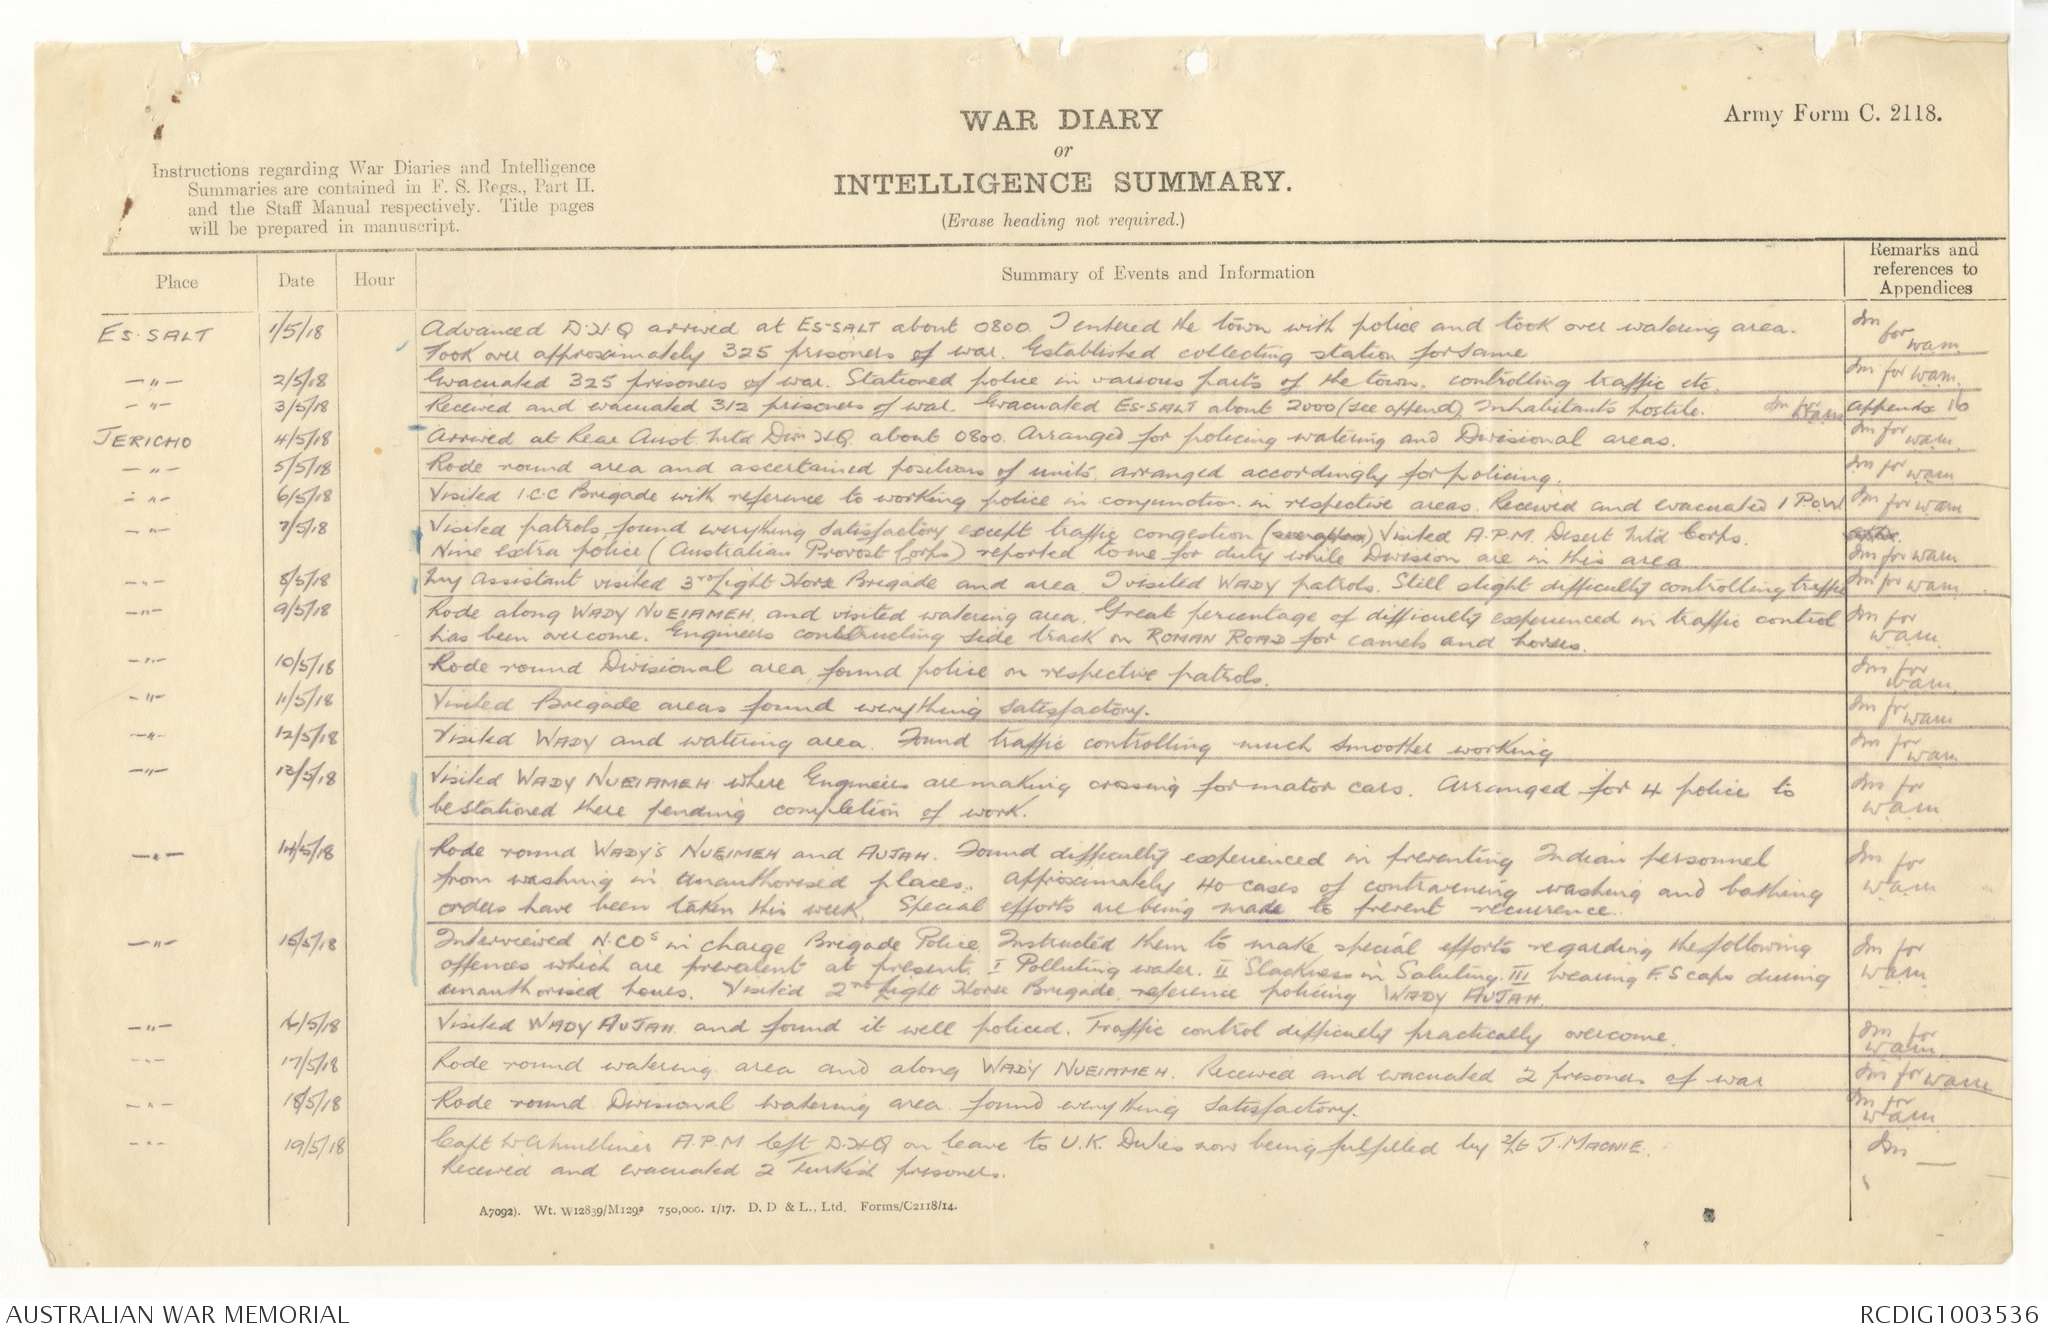 Army Form C. 2118.
WAR DIARY
or
INTELLIGENCE SUMMARY.
(Erase heading not required.)
Instructions regarding War Diaries and Intelligence
Summaries are contained in F. S. Regs., Part II.
and the Staff Manual respectively. Title pages
will be prepared in manuscript.
Place Date Hour Summary of Events and Information Remarks and references to Appendices
ES-SALT 1/5/18 Advanced D.H.Q arrived at ES-SALT about 0800. I entered the town with police and took over watering area. Jm for
Took over approximately 325 prisoners of war. Established collecting station for same W.A.M.
—"— 2/5/18 Evacuated 325 prisoners of war. Stationed police in various parts of the town. controlling traffic etc. Jm for W.A.M.
—"— 3/5/18 Received and evacuated 312 prisoners of war. Evacuated ES-SALT about 2000 (see append) Inhabitants hostile. Jm for W.A.M. appendix 16
JERICHO 4/5/18 Arrived at Rear Aust. Mtd Divn HQ about 0800. Arranged for policing watering and Divisional areas. Jm for W.A.M.
—"— 5/5/18 Rode round area and ascertained positions of units, arranged accordingly for policing. Jm for W.A.M.
—"— 6/5/18 Visited I.C.C Brigade with reference to working police in conjunction in respective areas. Received and evacuated 1 P.O.W Jm for W.A.M.
—"— 7/5/18 Visited patrols, found everything satisfactory except traffic congestion Visited A.P.M. Desert Mtd Corps.
Nine extra police (Australian Provost Corps) reported to me for duty while Division are in this area Jm for W.A.M.
—"— 8/5/18 My Assistant visited 3rd Light Horse Brigade and area. I visited WADY patrols. Still slight difficulty controlling traffic Jm for W.A.M.
—"— 9/5/18 Rode along WADY NUEIAMEH, and visited watering area. Great percentage of difficulty experienced in traffic control Jm for
has been overcome. Engineers constructing side track on ROMAN ROAD for camels and horses. W.A.M.
—"— 10/5/18 Rode round Divisional area, found police on respective patrols. Jm for W.A.M.
—"— 11/5/18 Visited Brigade areas found everything satisfactory. Jm for W.A.M.
—"— 12/5/18 Visited WADY and watering area. Found traffic controlling much smoother working Jm for W.A.M.
—"— 13/5/18 Visited WADY NUEIAMEH where Engineers are making crossing for motor cars. Arranged for 4 police to Jm for
be stationed there pending completion of work. W.A.M.
—"— 14/5/18 Rode round WADY'S NUEIMEH and AUJAH. Found difficulty experienced in preventing Indian personnel Jm for
from washing in unauthorised places. Approximately 40 cases of contravening washing and bathing W.A.M.
orders have been taken this week. Special efforts are being made to prevent recurrence.
—"— 15/5/18 Interviewed N.C.Os in charge Brigade Police. Instructed them to make special efforts regarding the following Jm for
offences which are prevalent at present. I Polluting water. II Slackness in Saluting. III wearing F.S caps during W.A.M.
unauthorised hours. Visited 2nd Light Horse Brigade reference policing WADY AUJAH.
—"— 16/5/18 Visited WADY AUJAH and found it well policed. Traffic control difficulty practically overcome. Jm for W.A.M.
—"— 17/5/18 Rode round watering area and along WADY NUEIAMEH. Received and evacuated 2 prisoners of war Jm for W.A.M.
—"— 18/5/18 Rode round Divisional watering area found everything satisfactory. Jm for W.A.M.
—"— 19/5/18 Capt A.P.M left D.H.Q on leave to U.K. Duties now being fulfilled by 2/Lt J. MACNIE. Jm —
Received and evacuated 2 Turkish prisoners.
A7092). Wt. W12839/M1292 750,000. 1/17. D. D & L., Ltd. Forms/C2118/14.
AUSTRALIAN WAR MEMORIAL RCDIG1003536